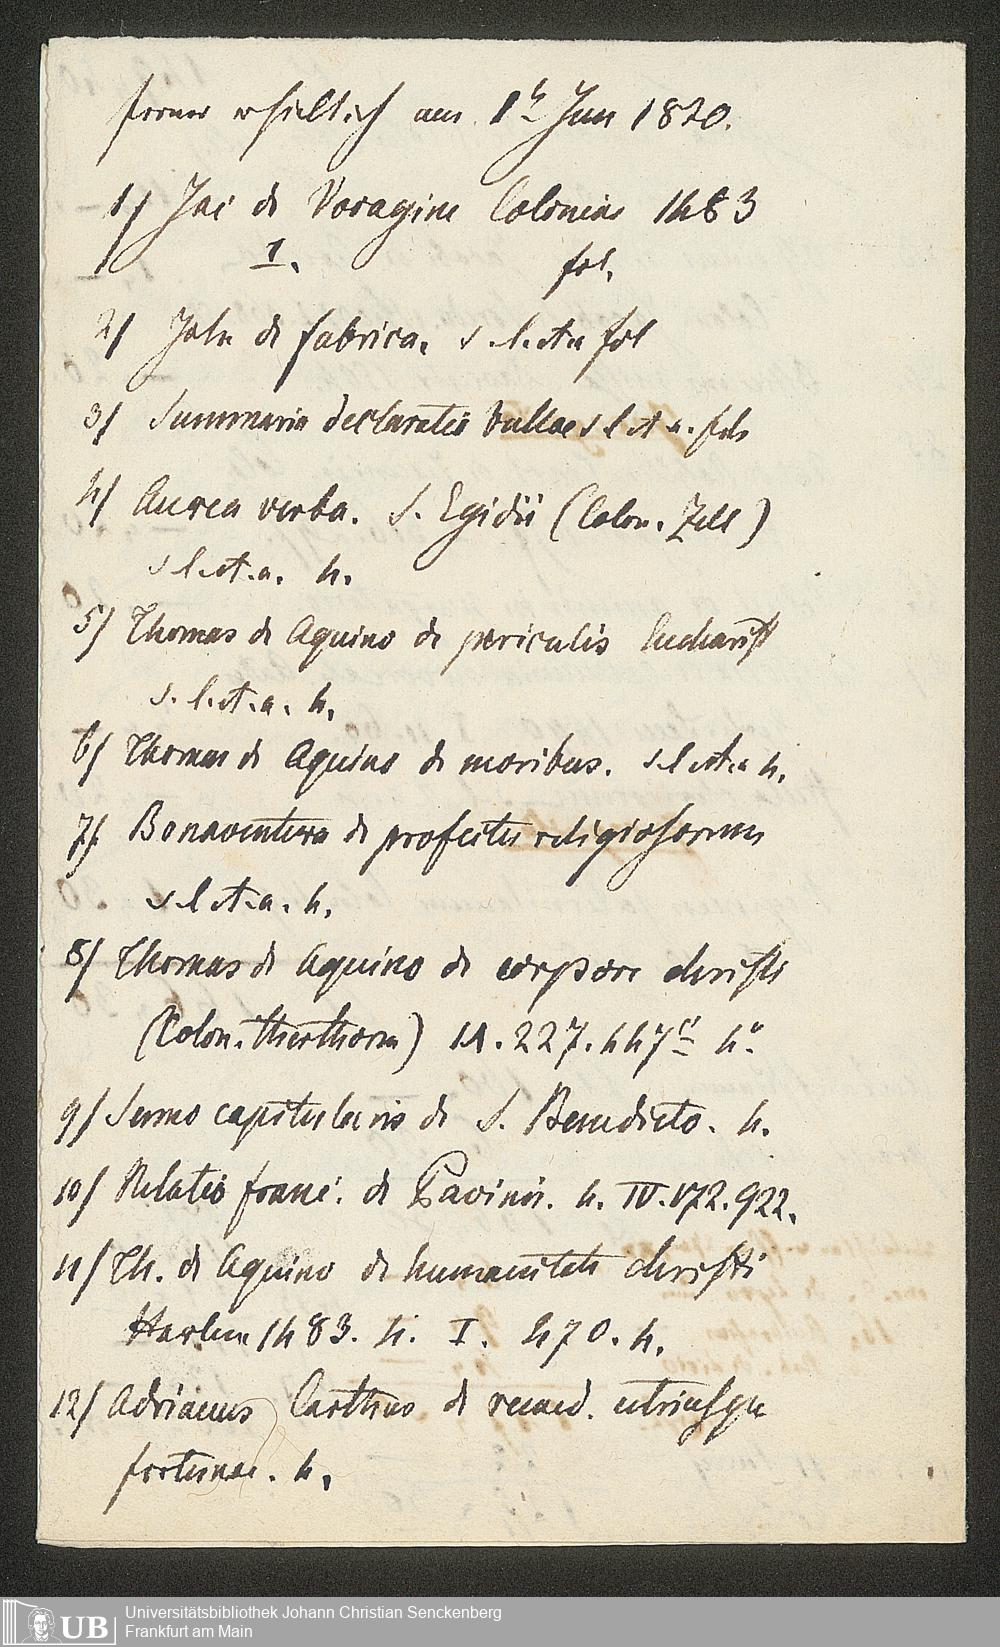 ferner erhielt ich am 1t Jun 1820.
1/ Jac de Voragine Coloniae 1483
1. fol.
2/ Joh. de fabrica. s. l. et a fol
3/ Summaria declaratio bullae s l et a. fol
4/ Aurea verba. S. Egidii (Colon. Zell)
s l. et. a. 4.
5/ Thomas de Aquino de periculis Eucharist
s. l. et. a. 4.
6/ Thomas de Aquino de moribus. s. l et a 4.
7/ Bonaventura de profectu religiosorum
s. l et. a. 4.
8/ Thomas de Aquino de corpore christi
(Colon. therhorn) 11. 227. 447 4°.
9/ Sermo capitularis de S. Benedicto. 4.
10/ Relatio franc. de Pavinis. 4. IV. 172. 922.
11/ Th. de Aquino de humanitate christi
Harlem 1483. I. 470. 4.
12/ Adrianus Carthus de remed. utriusque
fortunae. 4.
UB
Universitätsbibliothek Johann Christian Senckenberg
Frankfurt am Main